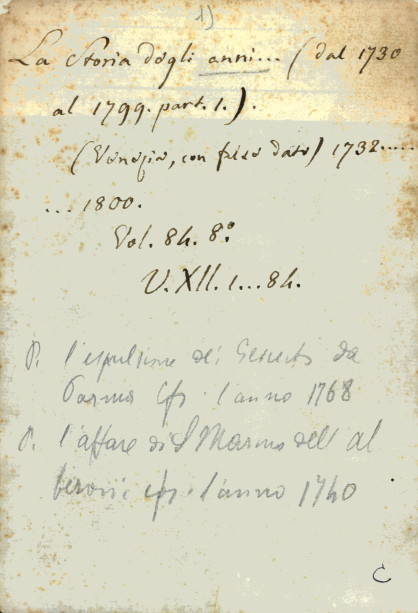 1)
La Storia degli anni... (dal 1730
al 1799. part. 1.).
(Venezia, con falsa data) 1732.....
... 1800.
Vol. 84. 8.°
V. XII. 1...84.
P. l'espulsione dei Gesuiti da
Parma cfr. l'anno 1768
P. l'affare di S Marino dell' al
beroni cfr. l'anno 1740
C